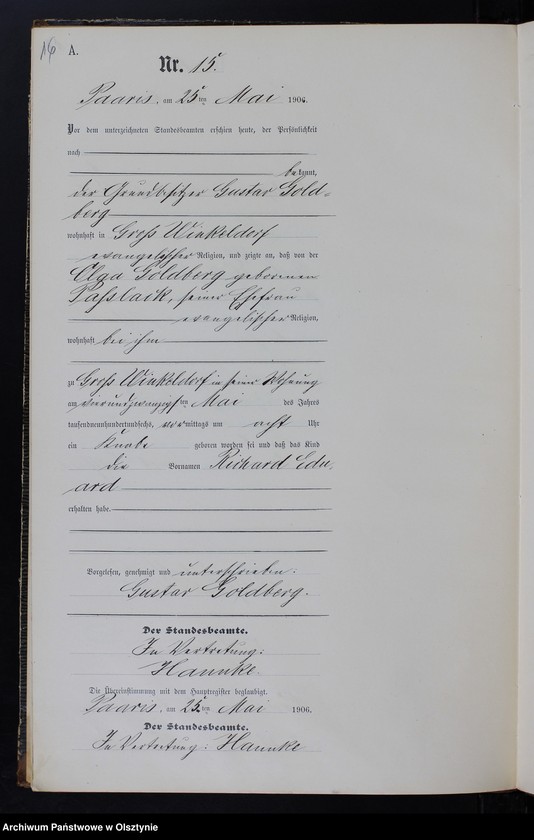 16
A.
Nr. 15.
Paaris, am 25ten Mai 1906.
Vor dem unterzeichneten Standesbeamten erschien heute, der Persönlichkeit
nach
bekannt,
der Grundbesitzer Gustav Gold-
berg
wohnhaft in Groß Winkeldorf
evangelischer Religion, und zeigte an, daß von der
Olga Goldberg geborenen
Passlack, seiner Ehefrau
evangelischer Religion,
wohnhaft bei ihm
zu Groß Winkeldorf in seiner Wohnung
am vierundzwanzigsten Mai des Jahres
tausendneunhundertundsechs, vormittags um acht Uhr
ein Knabe geboren worden sei und daß das Kind
die Vornamen Richard Edu-
ard
erhalten habe.
Vorgelesen, genehmigt und unterschrieben:
Gustav Goldberg.
Der Standesbeamte.
In Vertretung:
Hannke.
Die Übereinstimmung mit dem Hauptregister beglaubigt.
Paaris, am 25ten Mai 1906.
Der Standesbeamte.
In Vertretung: Hannke
Archiwum Państwowe w Olsztynie